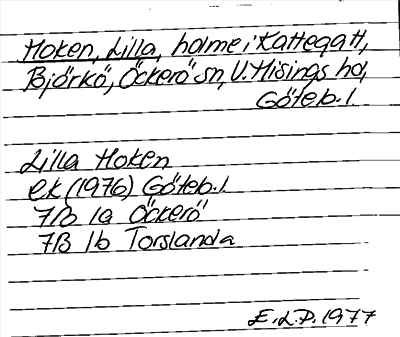 Hoken, Lilla, holme i Kattegatt,
Björkö, Öckerö sn, V. Hisings hd,
Göteb. l.
Lilla Hoken
ek (1976) Göteb. l.
7B 1a Öckerö
7B 1b Torslanda
E.L.P. 1977